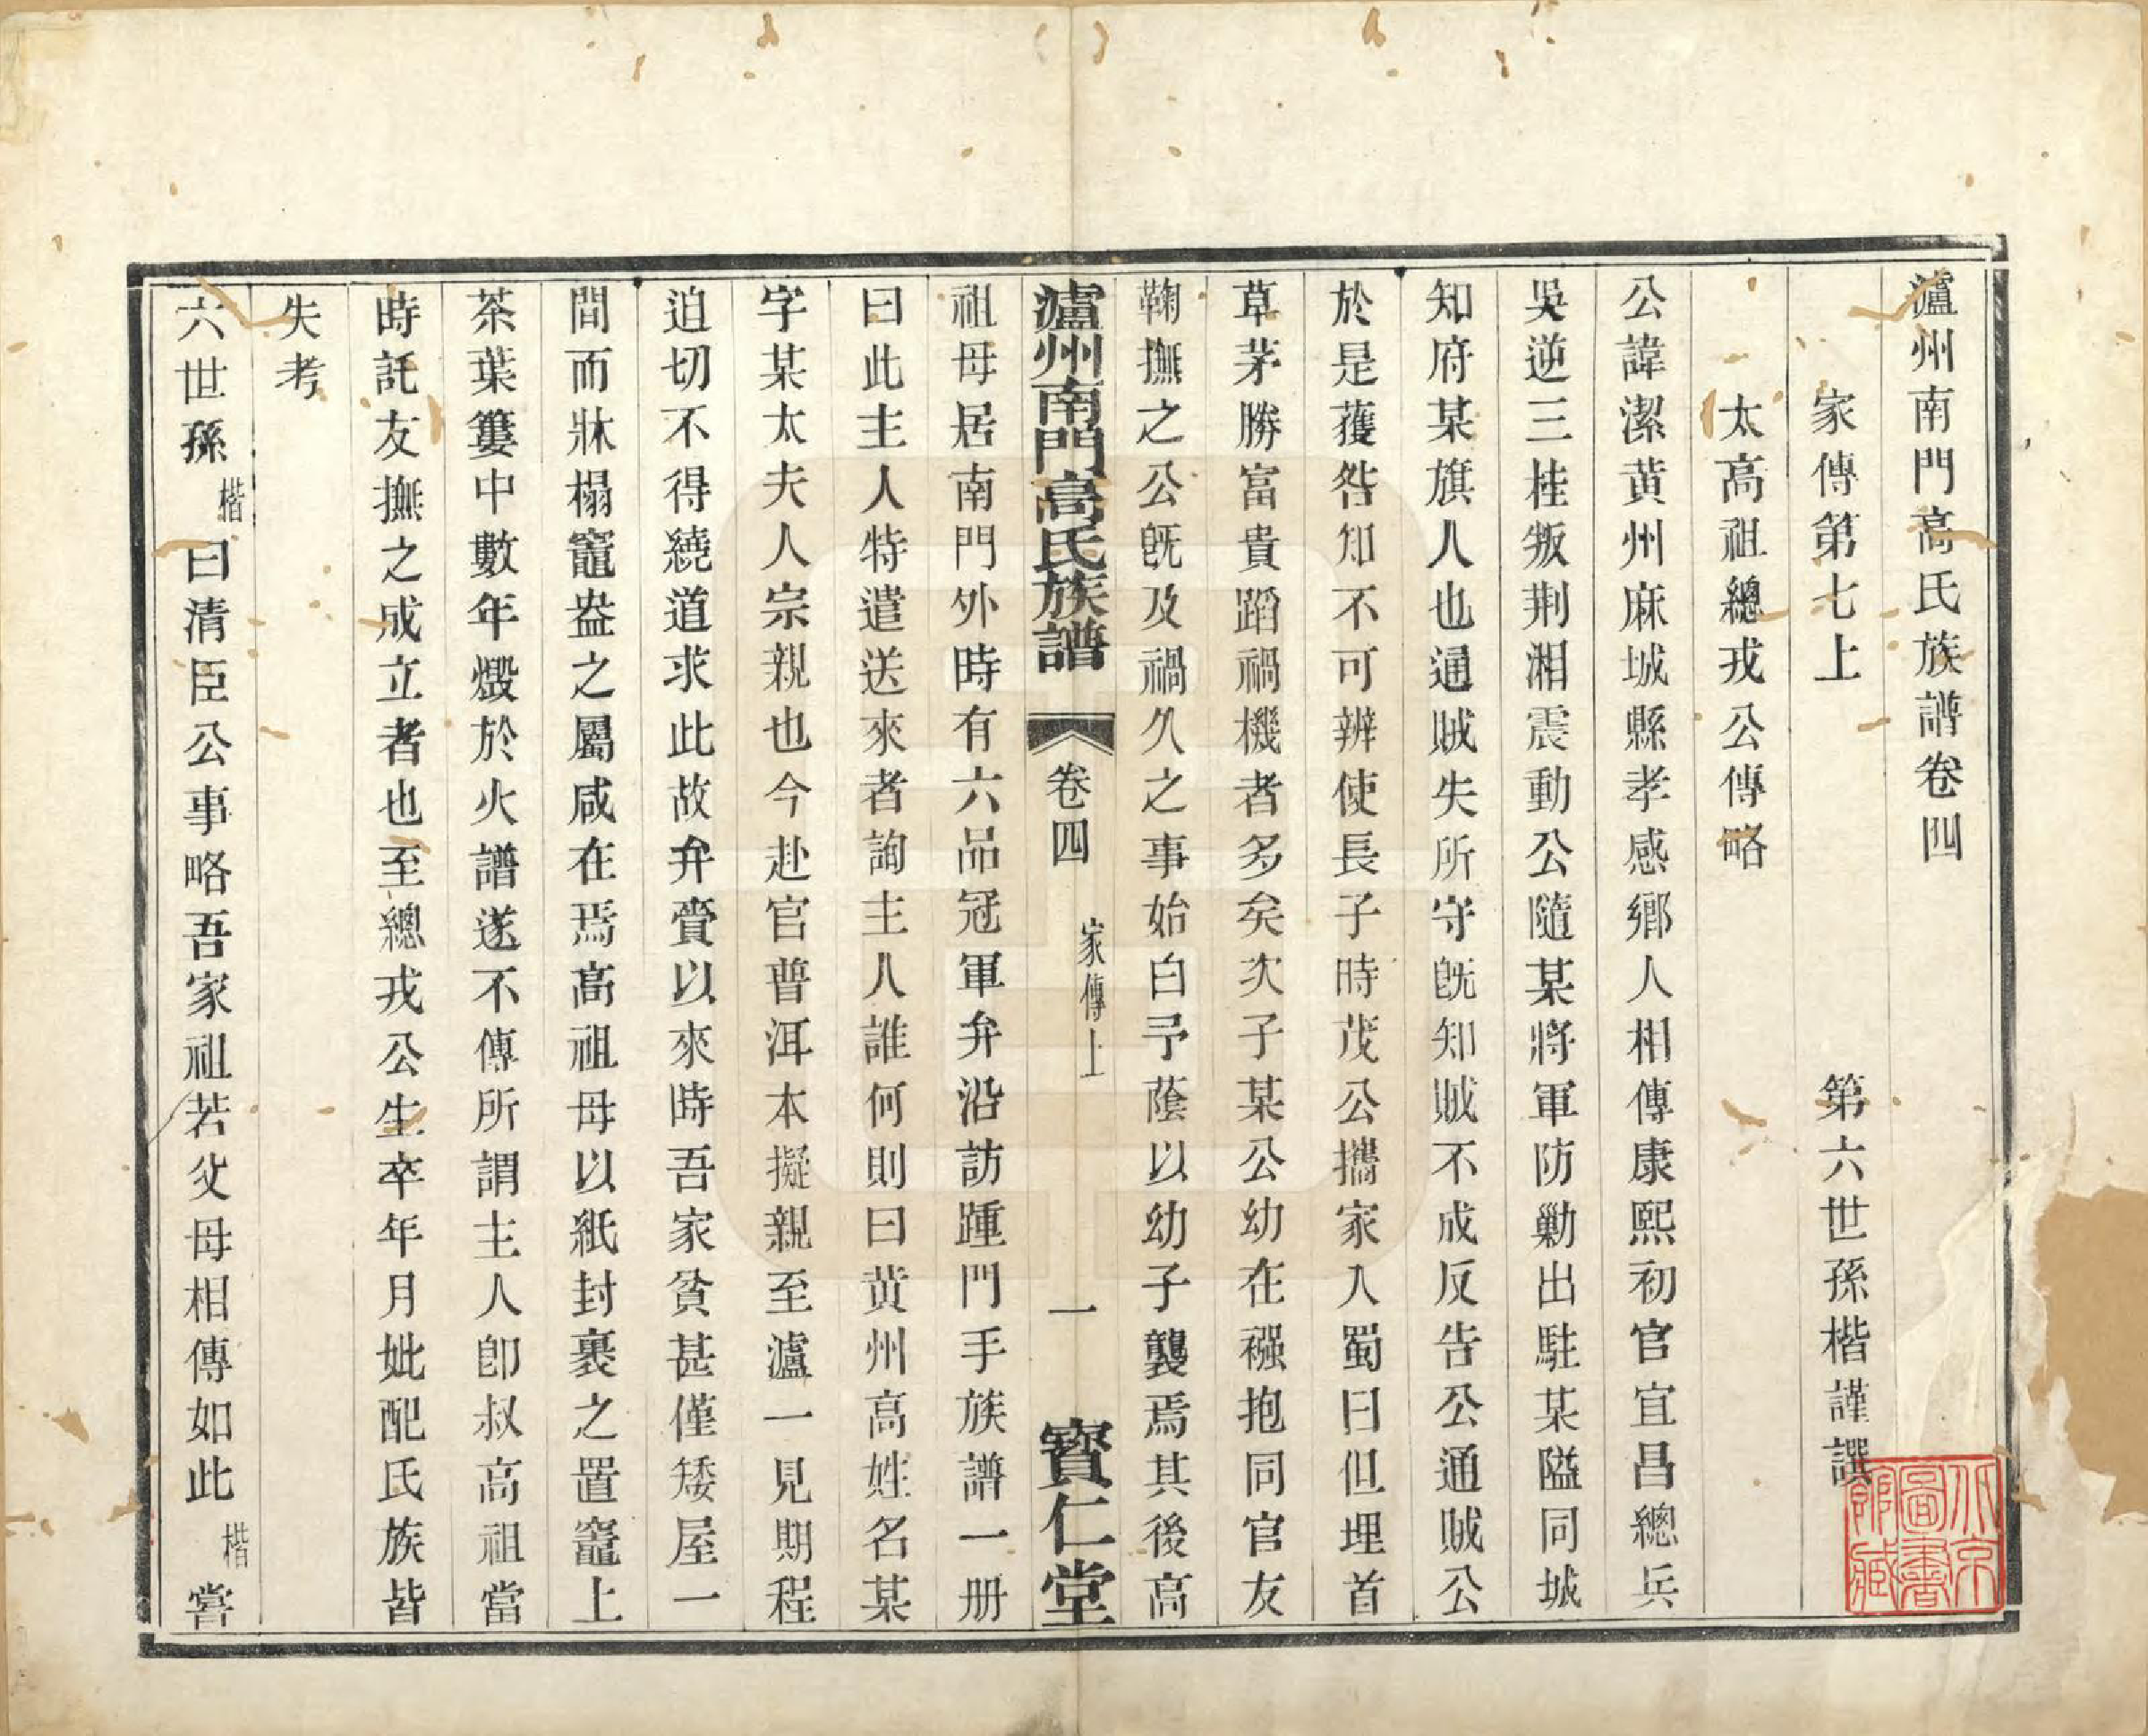 瀘州南門高氏族譜卷四
家傳第七上　第六世孫楷謹譔
太高祖總戎公傳略
公諱潔黃州麻城縣孝感鄉人相傳康熙初官宜昌總兵
吳逆三桂叛荆湘震動公隨某將軍防勦出駐某隘同城
知府某旗人也通賊失所守旣知賊不成反告公通賊公
於是獲咎知不可辨使長子時茂公攜家入蜀曰但埋首
草茅勝富貴蹈禍機者多矣次子某公幼在襁抱同官友
鞠撫之公旣及禍久之事始白予蔭以幼子襲焉其後高
瀘州南門高氏族譜　卷四　家傳上　一　寳仁堂
祖母居南門外時有六品冠軍弁沿訪踵門手族譜一册
曰此主人特遣送來者詢主人誰何則曰黃州高姓名某
字某太夫人宗親也今赴官普洱本擬親至瀘一見期程
迫切不得繞道求此故弁賫以來時吾家貧甚僅矮屋一
間而牀榻竈盎之屬咸在焉高祖母以紙封裹之置竈上
茶葉簍中數年燬於火譜遂不傳所謂主人卽叔高祖當
時託友撫之成立者也至總戎公生卒年月妣配氏族皆
失考
六世孫楷曰清臣公事略吾家祖若父母相傳如此楷嘗
北京圖書館藏